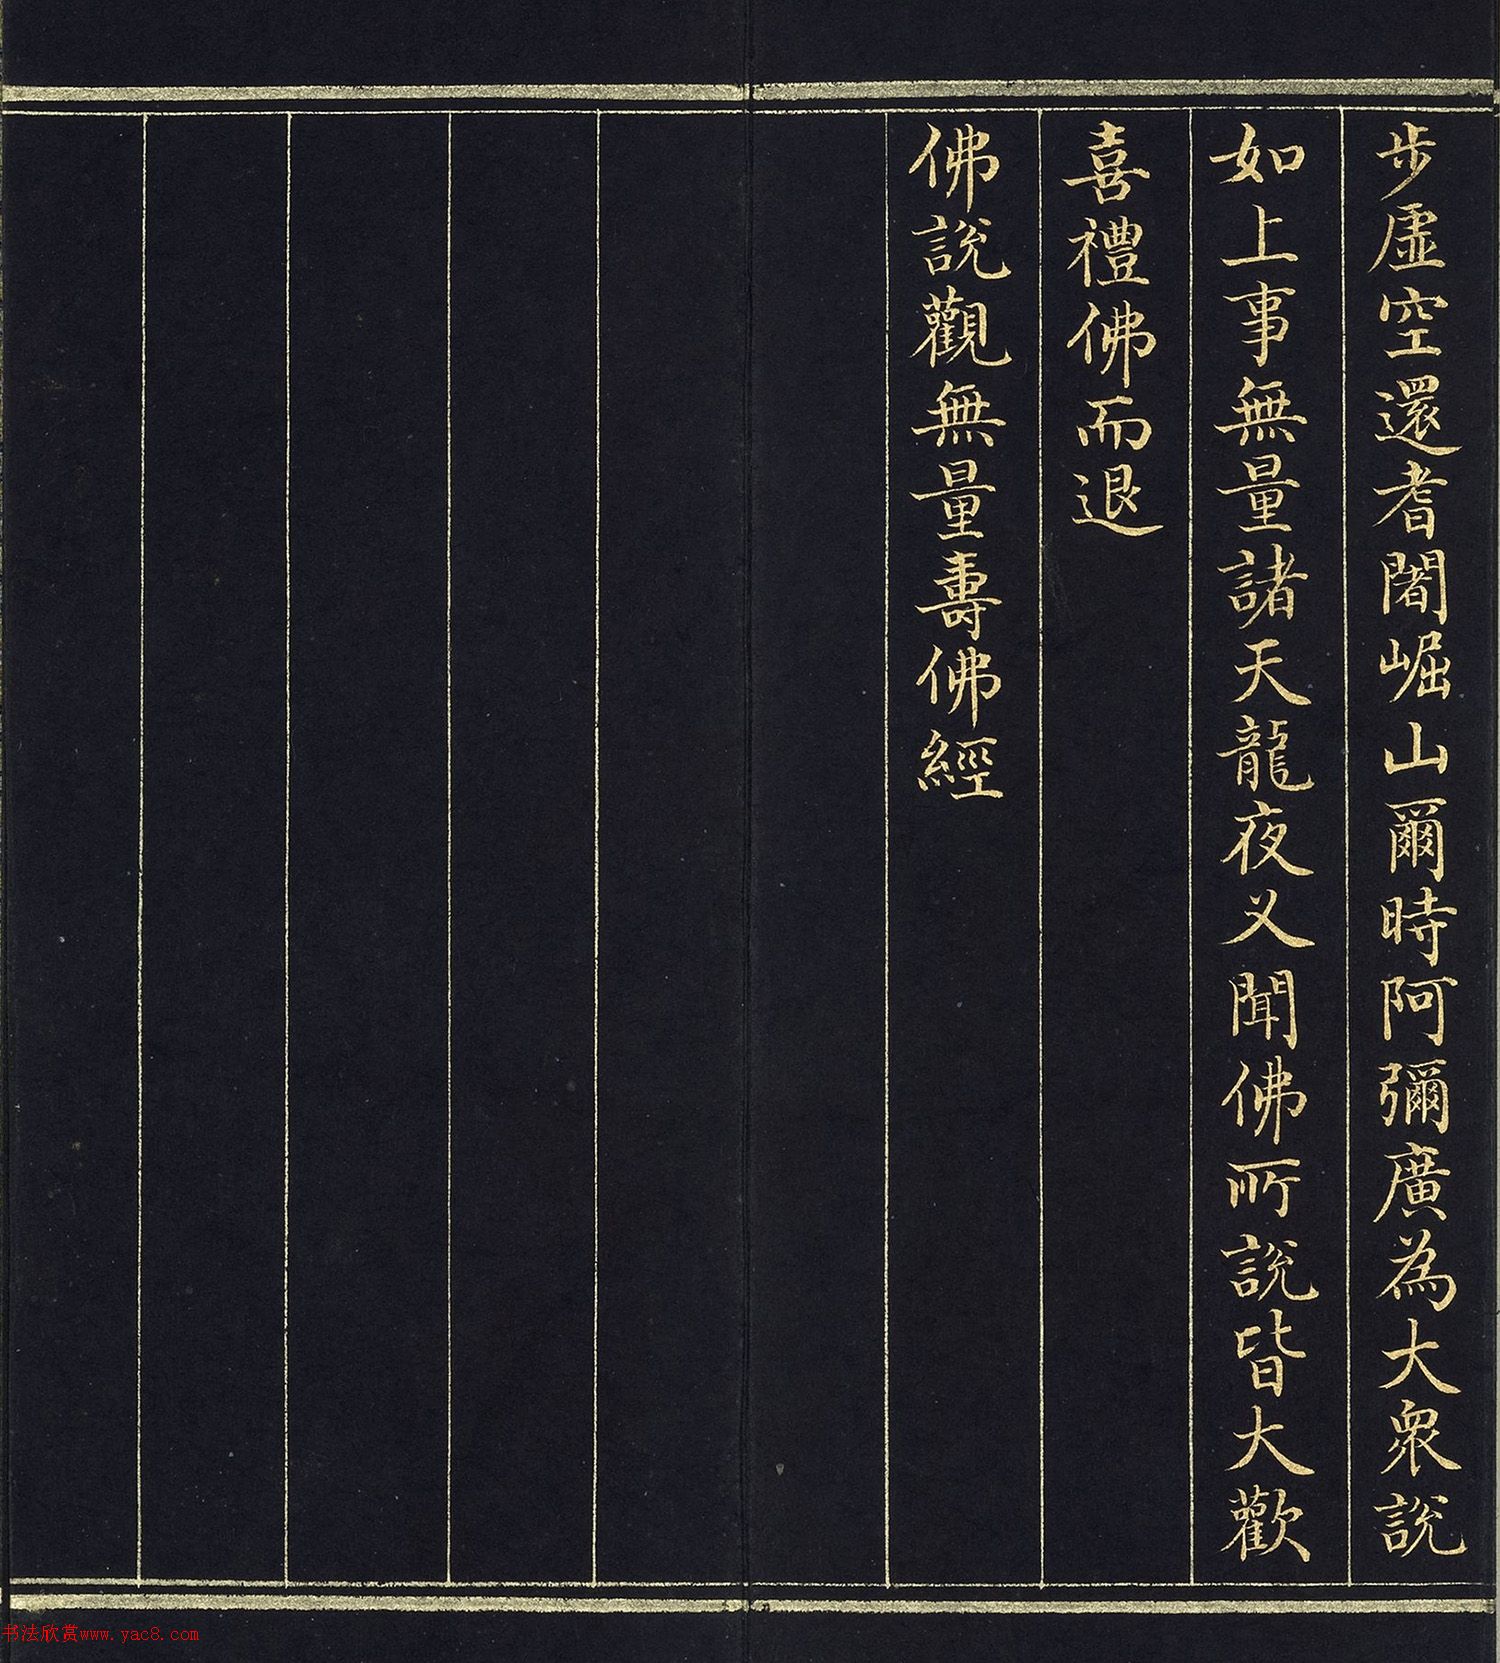 步虛空還耆闍崛山爾時阿彌廣為大眾說
如上事無量諸天龍夜义聞佛所說皆大歡
喜禮佛而退
佛說觀無量壽佛經
书法欣赏www.yac8.com